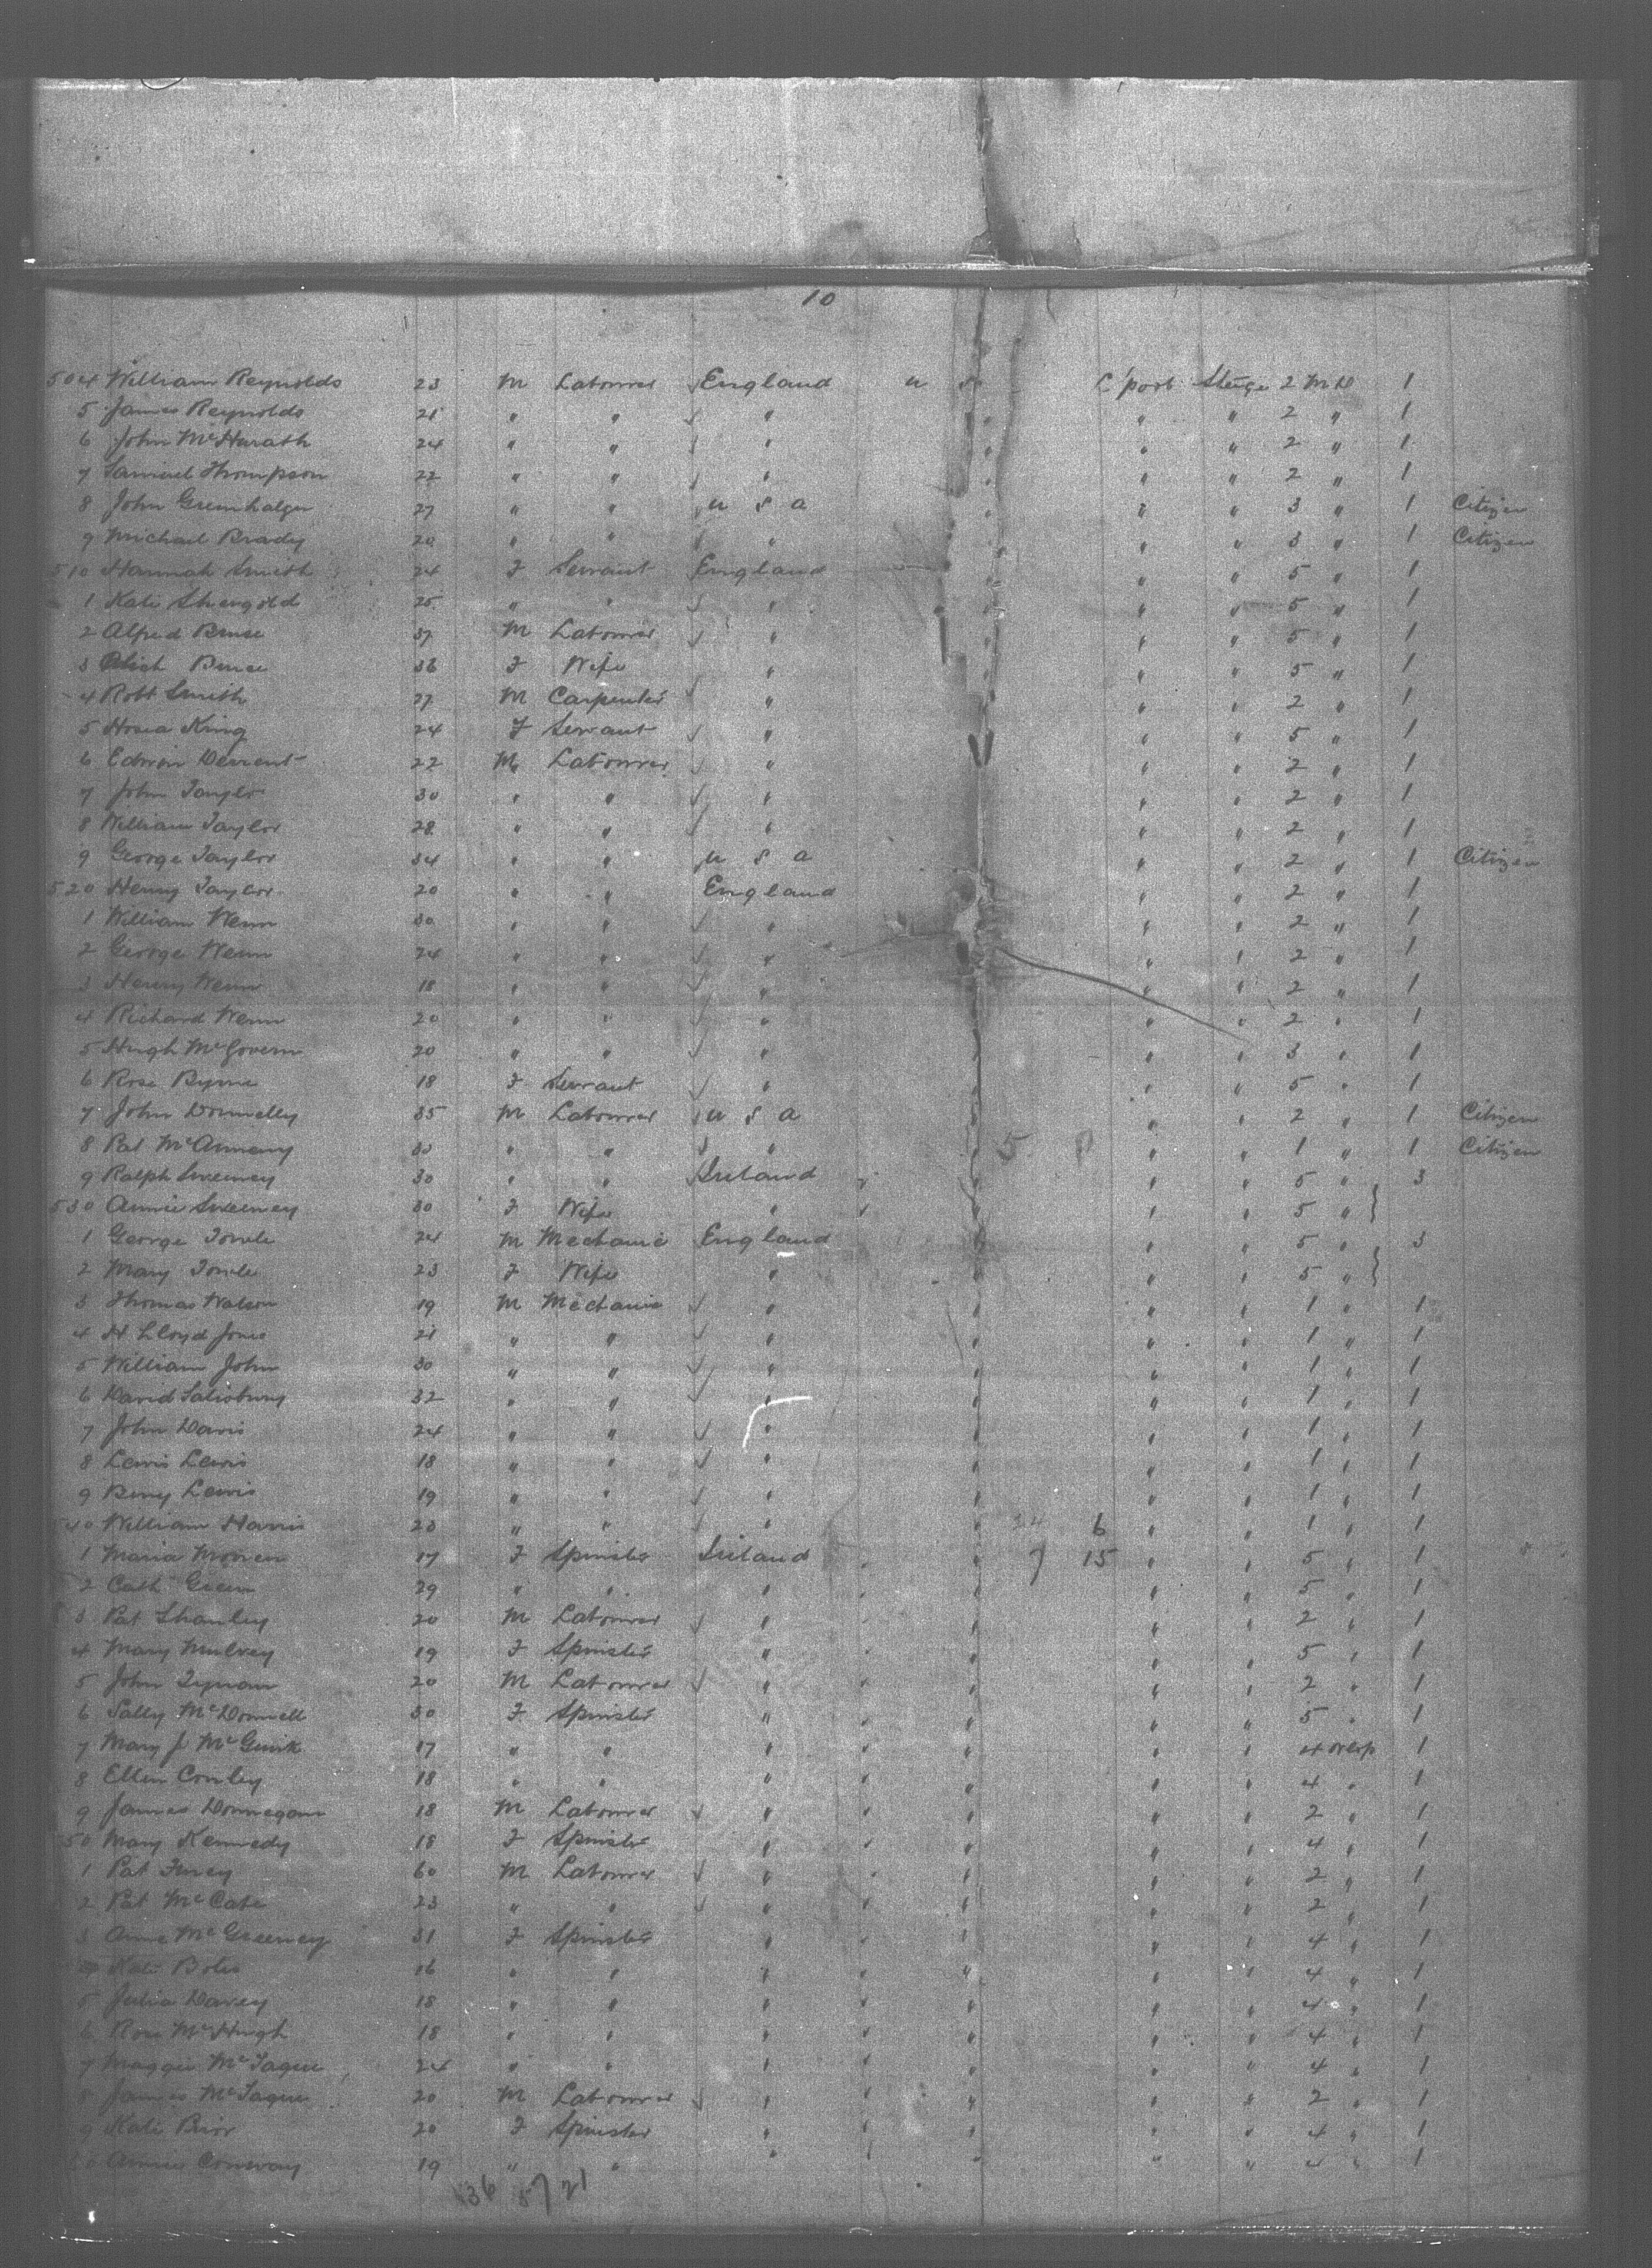 10
504 William Reynolds 23 M Labourer England U S L'pool Steerge 2 M D 1
5 James Reynolds 21 " " " " " " 2 " 1
6 John McHarath 24 " " " " " " 2 " 1
7 Samuel Thompson 22 " " " " " " 2 " 1
8 John Greenhalgh 27 " " U S A " " " 3 " 1 Citizen
9 Michael Brady 20 " " " " " " 3 " 1 Citizen
510 Hannah Smith 24 F Servant England " " " 5 " 1
1 Kate 25 " " " " " " 5 " 1
2 Alfred Bruce 37 M Labourer " " " " 5 " 1
3 Bruce 36 F Wife " " " " 5 " 1
4 Robt Smith 27 M Carpenter " " " " 2 " 1
5 Hosea King 24 F Servant " " " " 5 " 1
6 Edwin Derrent 22 M Labourer " " " " 2 " 1
7 John Taylor 30 " " " " " " 2 " 1
8 William Taylor 28 " " " " " " 2 " 1
9 George Taylor 34 " " U S A " " " 2 " 1 Citizen
520 Henry Taylor 20 " " England " " " 2 " 1
1 William Wenn 30 " " " " " " 2 " 1
2 George Wenn 24 " " " " " " 2 " 1
3 Henry Wenn 18 " " " " " " 2 " 1
4 Richard Wenn 20 " " " " " " 2 " 1
5 Hugh McGovern 20 " " " " " " 3 " 1
6 Rose Byrne 18 F Servant " " " " 5 " 1
7 John Donnelly 35 M Labourer U S A " " " 2 " 1 Citizen
8 Pat McAnnany 30 " " " " 5 " " 1 " 1 Citizen
9 Ralph Sweeney 30 " " Ireland " " " " 5 " 3
530 Annie Sweeney 30 F Wife " " " " " 5 "
1 George Towle 24 M Mechanic England " " " 5 " 3
2 Mary Towle 23 F Wife " " " " 5 "
3 Thomas Watson 19 M Mechanic " " " " 1 " 1
4 H Lloyd Jones 21 " " " " " " 1 " 1
5 William John 30 " " " " " " 1 " 1
6 David Salisbury 32 " " " " " " 1 " 1
7 John Davis 24 " " " " " " 1 " 1
8 Lewis Lewis 18 " " " " " " 1 " 1
9 Benj Lewis 19 " " " " " " 1 " 1
540 William Harris 20 " " " " 34 6 " " 1 " 1
1 Maria 17 F Spinster Ireland " " 7 15 " " 5 " 1
2 Cath Green 29 " " " " " " " 5 " 1
3 Pat Shanley 20 M Labourer " " " " 2 " 1
4 Mary Mulvey 19 F Spinster " " " " " 5 " 1
5 John Tynan 20 M Labourer " " " " " 2 " 1
6 Sally McDonnell 30 F Spinster " " " " " 5 " 1
7 Mary J McGuirk 17 " " " " " " " 4 1
8 Ellen Conley 18 " " " " " " " 4 " 1
9 James Donnegan 18 M Labourer " " " " " 2 " 1
50 Mary Kennedy 18 F Spinster " " " " " 4 " 1
1 Pat Furey 60 M Labourer " " " " " 2 " 1
2 Pat McCabe 23 " " " " " " " 2 " 1
3 Anne McGreeney 31 F Spinster " " " " " 4 " 1
Kate 16 " " " " " " " 4 " 1
5 Julia Davey 18 " " " " " " " 4 " 1
6 Rose McHugh 18 " " " " " " " 4 " 1
7 Maggie McTague 24 " " " " " " " 4 " 1
8 James McTague 20 M Labourer " " " " " 2 " 1
9 Kate Prior 20 F Spinster " " " " " 4 " 1
Annie Conway 19 " " " " " " " 4 " 1
36 57 21